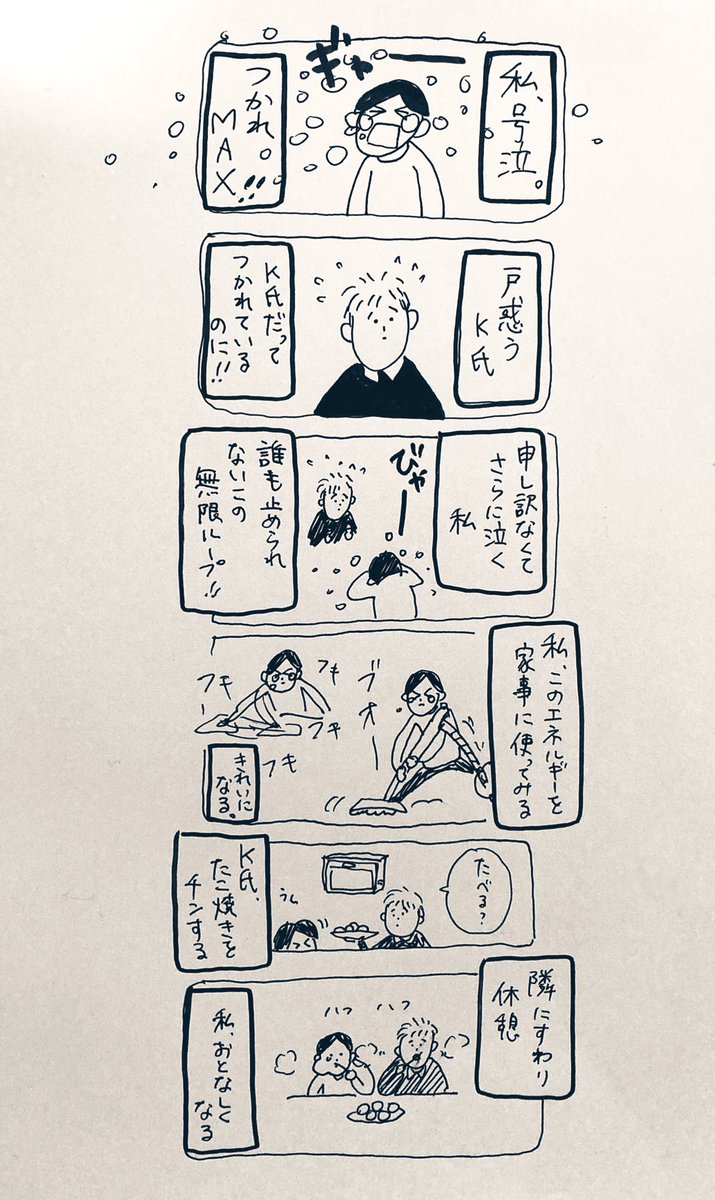 私、号泣。
ギャー
つかれ。
MAX!!
戸惑う
K氏
K氏だって
つかれている
のに!!
申し訳なくて
さらに泣く
私
びゃー
誰も止められ
ないこの
無限ループ!!
私、このエネルギーを
家事に使ってみる
ブオー
フキ
フキ
フキ
フキ
きれいに
なる。
たべる?
うん
K氏、
たこ焼きを
チンする
隣にすわり
休憩
ハフ
ハフ
私、おとなしく
なる